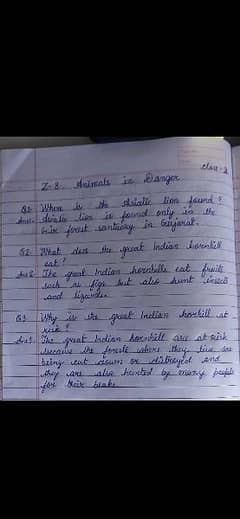 Class-2
L-8 Animals in Danger
Q1- Where is the Asiatic lion found?
Ans1- Asiatic lion is found only in the
Gir forest santuary in Gujarat.
Q2- What does the great Indian hornbill
eat?
Ans2- The great Indian hornbills eat fruits
such as figs but also hunt insects
and lizards.
Q3. Why is the great Indian hornbill at
risk?
Ans3. The great Indian hornbill are at risk
because the forests where they live are
being cut down or distroyed and
they are also hunted by many people
for their beaks.